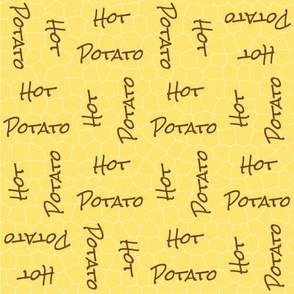 Potato
Hot
Hot
Potato
Potato
Hot
Potato
Hot
Hot
Potato
Hot
Potato
Hot
Potato
Hot
Potato
Hot
Potato
Hot
Potato
Hot
Potato
Hot
Potato
Potato
Hot
Potato
Hot
Hot
Potato
Hot
Potato